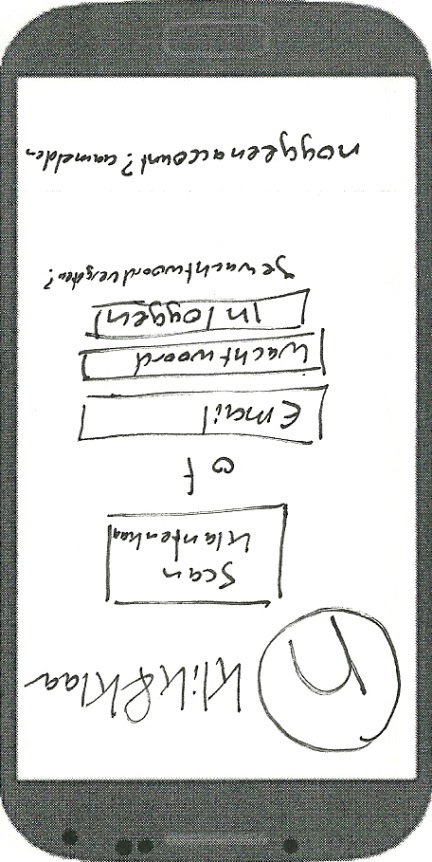 klik&klaar
Scan
klantenkaart
of
Email
wachtwoord
inloggen
Je wachtwoord vergeten?
nog geen account? aanmelden